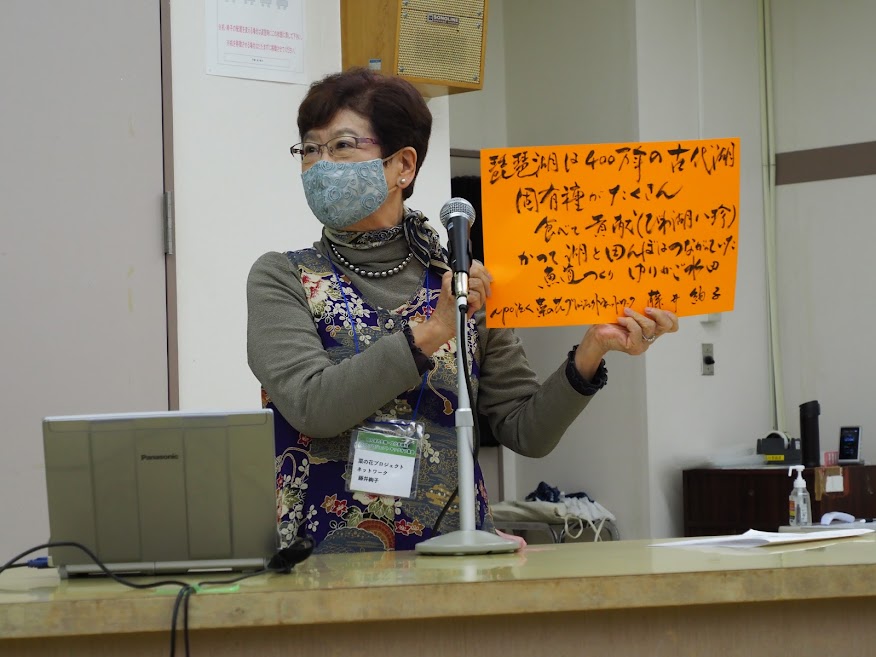 SONOLINE
琵琶湖は400万年の古代湖
固有種がたくさん
食べて貢献(びわ湖八珍)
かつて湖と田んぼはつながっていた
魚道つくり ゆりかご水田
npo法人 菜の花プロジェクトネットワーク 藤井絢子
菜の花プロジェクト
ネットワーク
藤井絢子
Panasonic